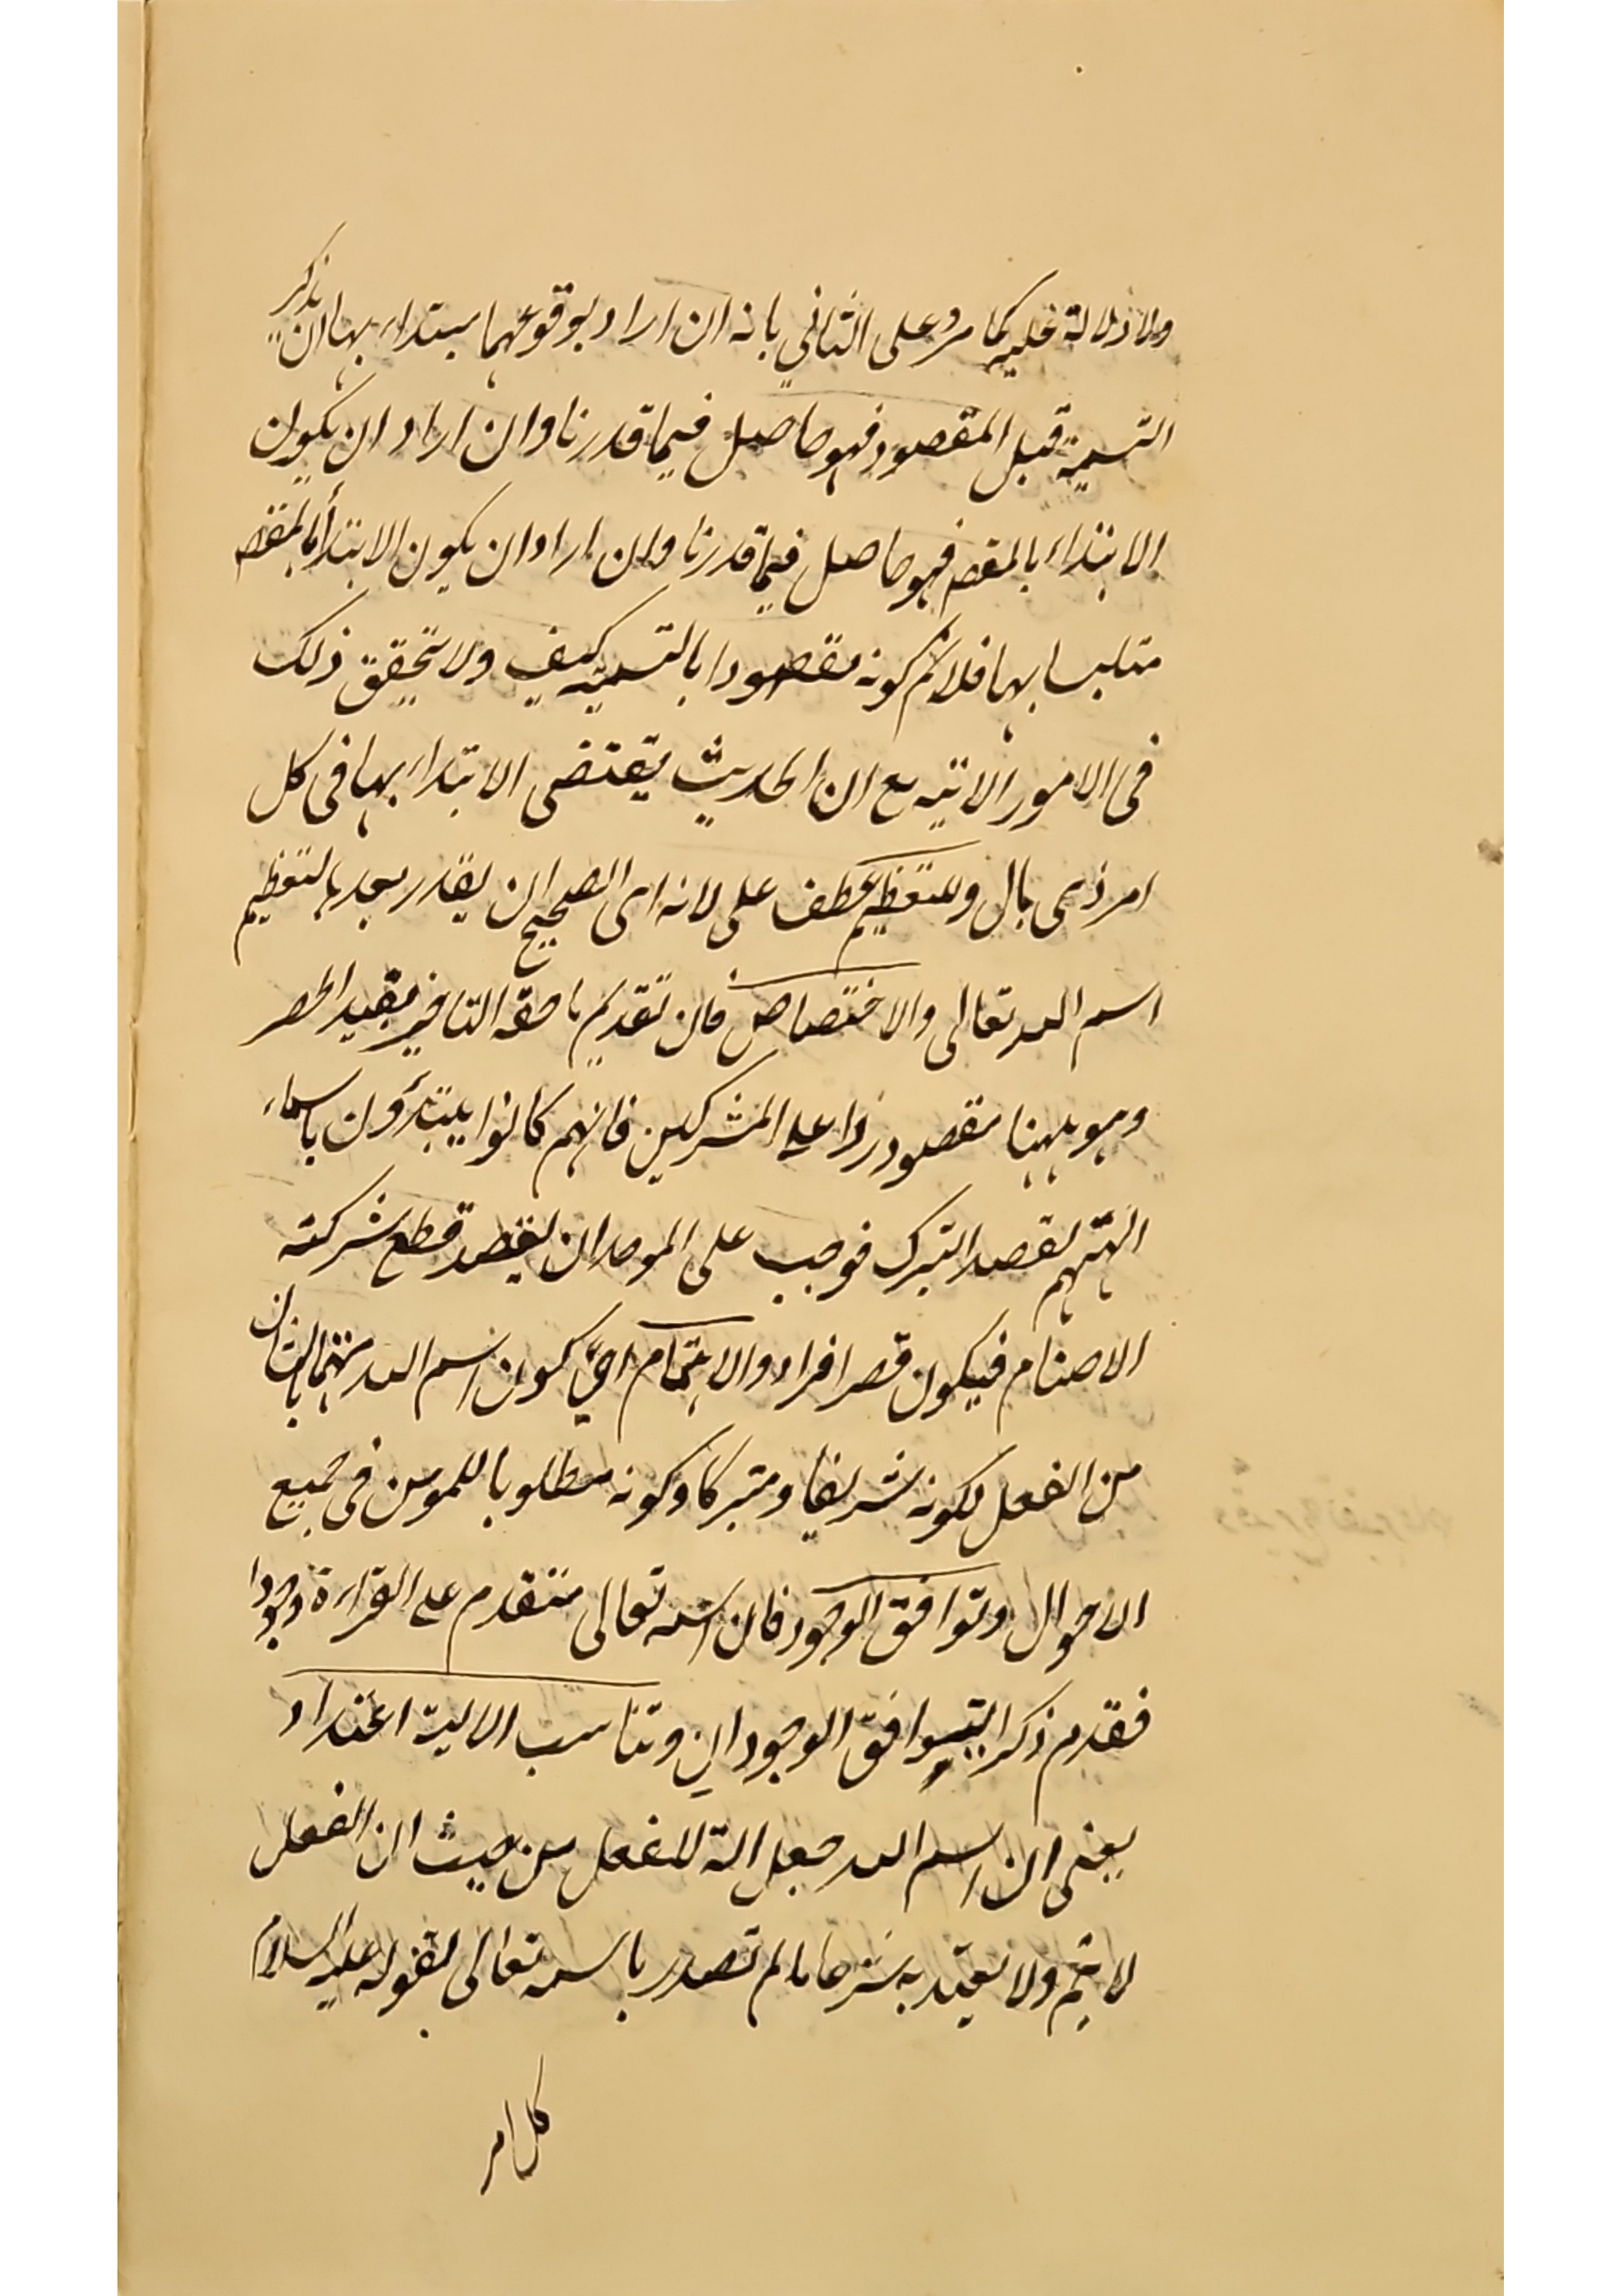 ولا دلالة عليه كما مر وعلى الثاني بانه ان اراد بوقوعهما مبتداء بها ان يذكر
التسمية قبل المقصود فهو حاصل فيما قدرنا وان اراد ان يكون
الابتداء بالمقصـ فهو حاصل فيما قدرنا وان اراد ان يكون الابتدأ بالمقصـ
متلبسا بها فلانم كونه مقصودا بالتسمية كيف ولا يتحقق ذلك
فى الامور الاتيه مع ان الحديث يقتضى الابتداء بها فى كل
امر ذى بال وللتعظيم عطف على لانه اى الصحيح ان يقدر بعد بالتعظيم
اسم الله تعالى والاختصاص فان تقديم ما حقه التاخير يفيد الحصر
وهو ههنا مقصود ردا على المشركين فانهم كانوا يبتدؤن باسماء
الهتهم لقصد التبرك فوجب على الموحد ان يقصد قطع شركته
الاصنام فيكون قصر افراد والاهتمام اى كون اسم الله مهتما بالشان
من الفعل لكونه شريفا ومتبركا وكونه مطلوبا للمومن فى جميع
الاحوال وتوافق الوجود فان اسمه تعالى متقدم على القراءة وجودا
فقدم ذكرا ليتوافق الوجودان وتناسب الالية اعتداد
يعنى ان اسم الله جعل الة للفعل من حيث ان الفعل
لا يتم ولا يعتد به شرعا ما لم تصدر باسمه تعالى لقوله عليه السلام
كل امر